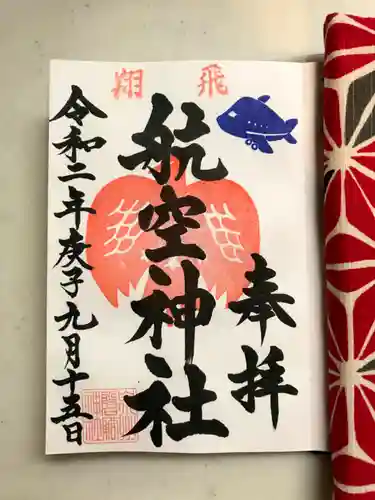 飛翔
奉拝
航空神社
令和二年庚子九月十五日